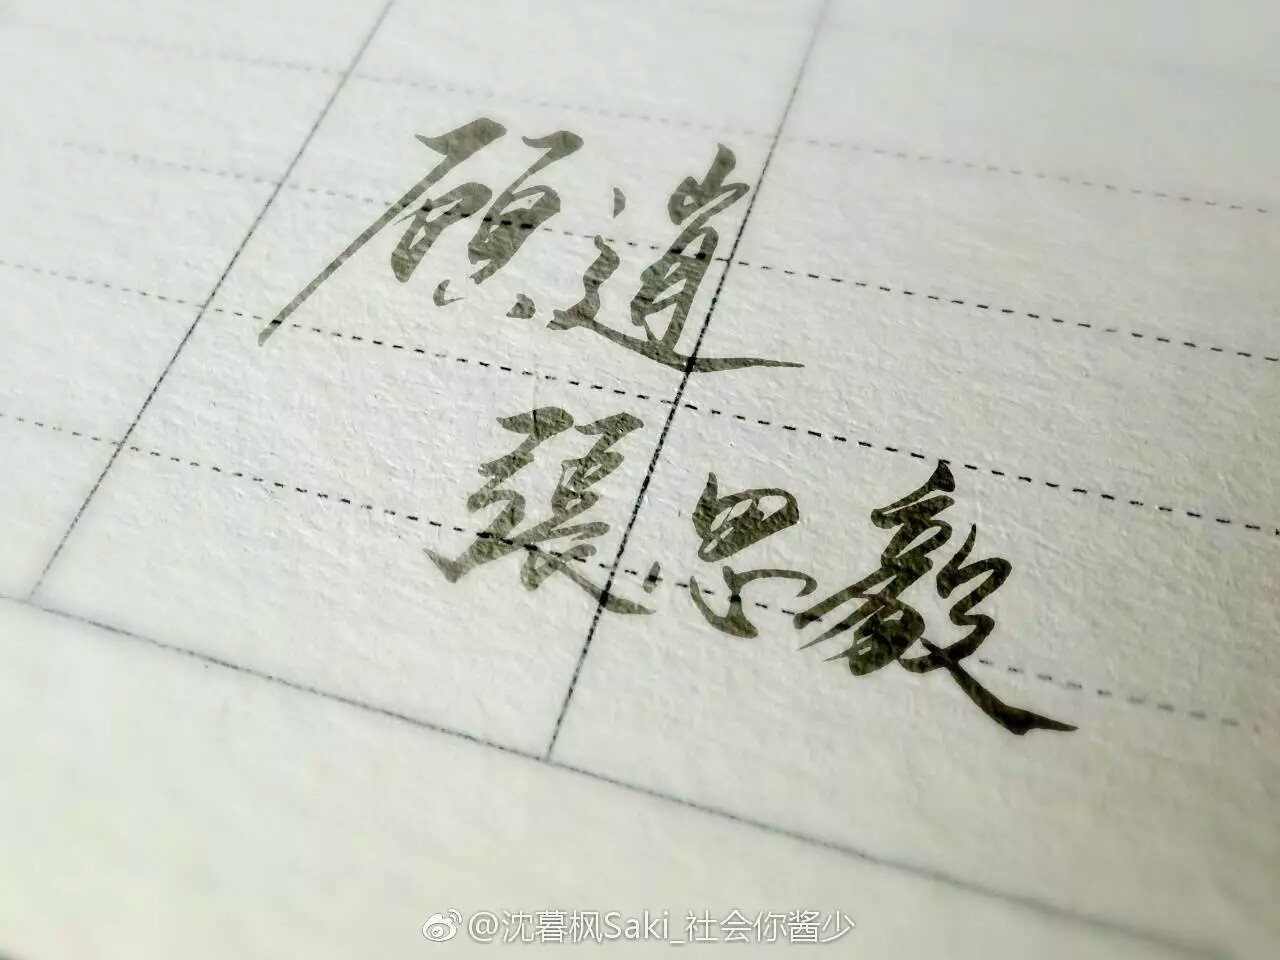 顾遗
張思毅
@沈暮枫Saki_社会你酱少